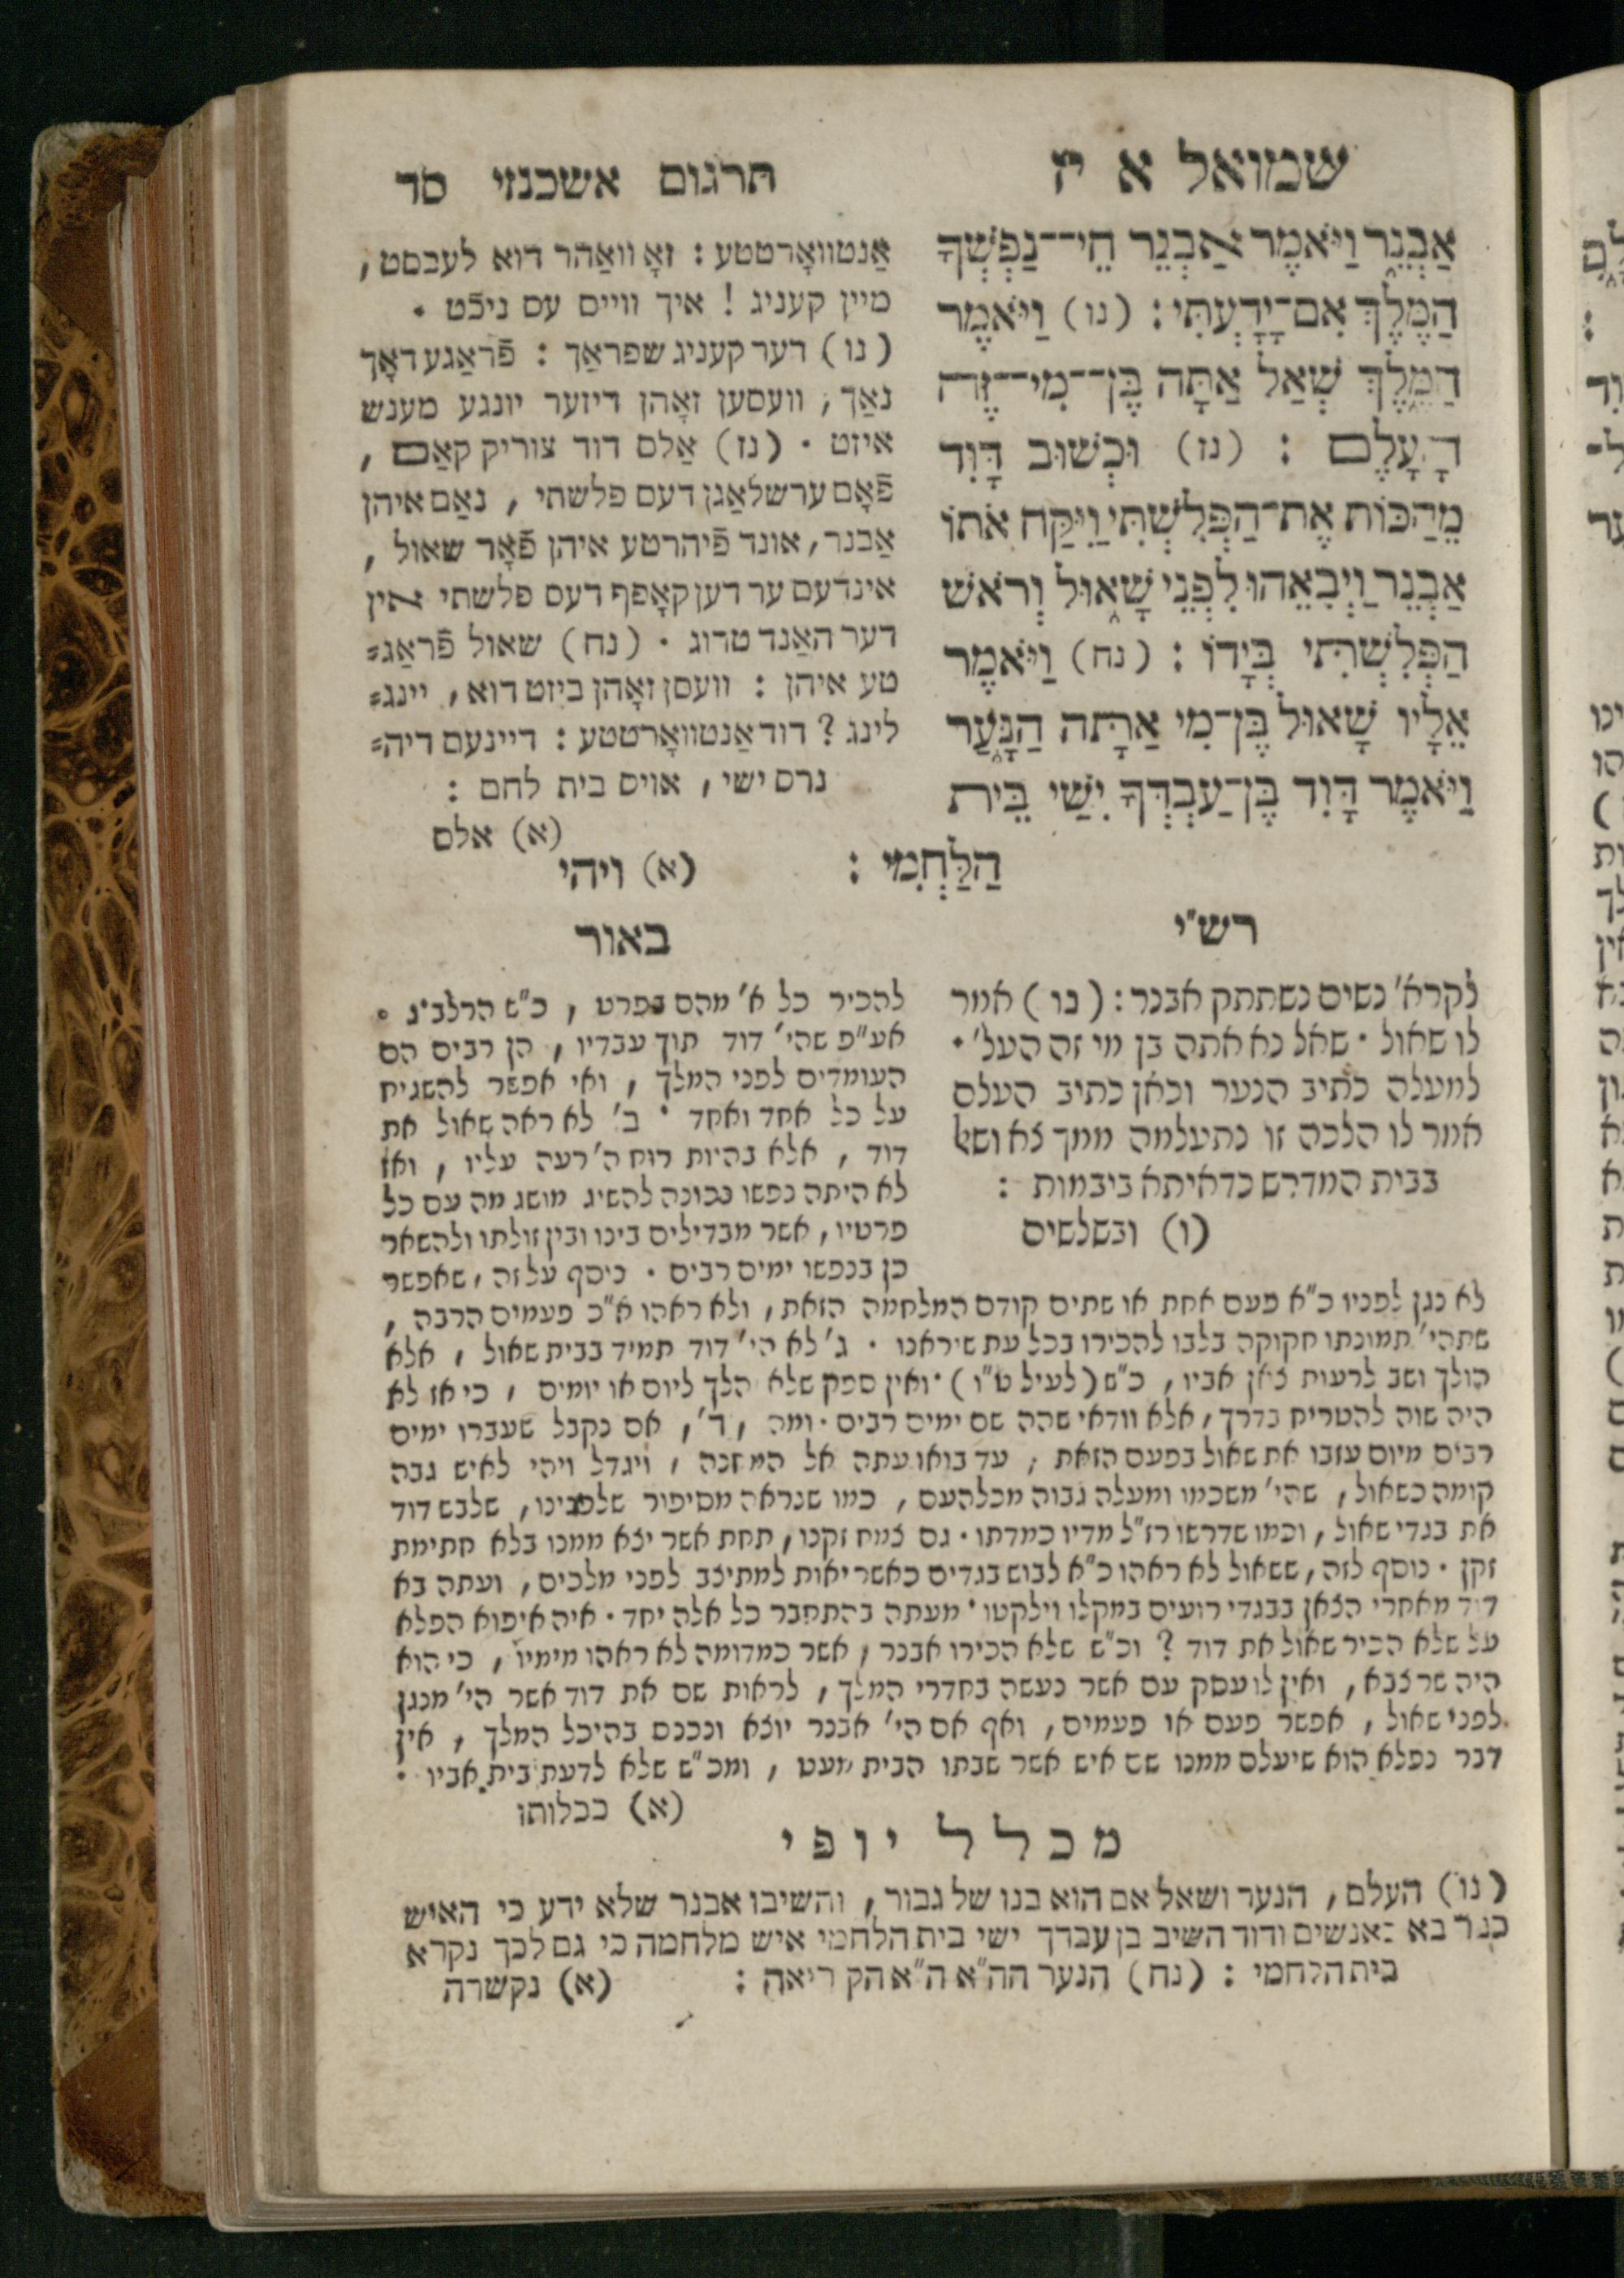 שמואל א יז
תרגום אשכנזי סד
אַבְנֵר וַיֹּאמֶר אַבְנֵר חֵי־נַפְשְׁךָ
הַמֶּלֶךְ אִם־יָדָעְתִּי : (נו) וַיֹּאמֶר
הַמֶּלֶךְ שְׁאַל אַתָּה בֶּן־מִי־זֶה
הָעָלֶם : (נז) וּכְשׁוּב דָּוִד
מֵהַכּוֹת אֶת־הַפְּלִשְׁתִּי וַיִּקַּח אֹתוֹ
אַבְנֵר וַיְבִאֵהוּ לִפְנֵי שָׁאוּל וְרֹאשׁ
הַפְּלִשְׁתִּי בְּיָדוֹ : (נח) וַיֹּאמֶר
אֵלָיו שָׁאוּל בֶּן־מִי אַתָּה הַנָּעַר
וַיֹּאמֶר דָּוִד בֶּן־עַבְדְּךָ יִשַׁי בֵּית
הַלַּחְמִי :
(א) ויהי
אַנטוואָרטטע : זאָ וואַהר דוא לעבסט ,
מיין קעניג ! איך ווייס עס ניכֿט .
(נו) דער קעניג שפראַך : פֿראַגע דאָך
נאַך , וועסען זאָהן דיזער יונגע מענש
איזט . (נז) אַלס דוד צוריק קאַם ,
פֿאָם ערשלאַגן דעם פלשתי , נאַם איהן
אַבנר , אונד פֿיהרטע איהן פֿאָר שאול ,
אינדעם ער דען קאָפף דעס פלשתי אין
דער האַנד טרוג . (נח) שאול פֿראַג=
טע איהן : וועסן זאָהן ביזט דוא , יינג=
לינג ? דוד אַנטוואָרטטע : דיינעם דיה=
נרס ישי , אויס בית לחם :
(א) אלס
רש"י
לקרא' נשים נשתתק אבנר : (נו) אמר
לו שאול . שאל נא אתה בן מי זה העל' .
למעלה כתיב הנער וכאן כתיב העלם
אמר לו הלכה זו נתעלמה ממך צא ושאל
בבית המדרש כדאיתא ביבמות :
(ו) ובשלשים
באור
להכיר כל א' מהם בפרט , כ"ש הרלב"ג .
אע"פ שהי' דוד תוך עבדיו , הן רבים הם
העומדים לפני המלך , ואי אפשר להשגיח
על כל אחד ואחד . ב' לא ראה שאול את
דוד , אלא בהיות רוח ה' רעה עליו , ואז
לא היתה נפשו נכונה להשיג מושג מה עם כל
פרטיו , אשר מבדילים בינו ובין זולתו ולהשאר
כן בנפשו ימים רבים . ניסף על זה , שאפשר
לא נגן לפניו כ"א פעם אחת או שתים קודם המלחמה הזאת , ולא ראהו א"כ פעמים הרבה ,
שתהי' תמונתו חקוקה בלבו להכירו בכל עת שיראנו . ג' לא הי' דוד תמיד בבית שאול , אלא
הולך ושב לרעות צאן אביו , כ"ש (לעיל ט"ו) . ואין ספק שלא הלך ליום או יומים , כי אז לא
היה שוה להטריח בדרך , אלא וודאי שהה שם ימים רבים . ומה , ד' , אם נקבל שעברו ימים
רבים מיום עזבו את שאול בפעם הזאת , עד בואו עתה אל המחנה , ויגדל ויהי לאיש גבה
קומה כשאול , שהי' משכמו ומעלה גבוה מכל העם , כמו שנראה מסיפור שלפנינו , שלבש דוד
את בגדי שאול , וכמו שדרשו רז"ל מדיו כמדתו . גם צמח זקנו , תחת אשר יצא ממנו בלא חתימת
זקן . נוסף לזה , ששאול לא ראהו כ"א לבוש בגדים כאשר יאות למתיצב לפני מלכים , ועתה בא
דוד מאחרי הצאן בבגדי רועים במקלו וילקטו . מעתה בהתחבר כל אלה יחד . איה איפוא הפלא
על שלא הכיר שאול את דוד ? וכ"ש שלא הכירו אבנר , אשר כמדומה לא ראהו מימיו , כי הוא
היה שר צבא , ואין לו עסק עם אשר נעשה בחדרי המלך , לראות שם את דוד אשר הי' מנגן
לפני שאול , אפשר פעם או פעמים , ואף אם הי' אבנר יוצא ונכנס בהיכל המלך , אין
דבר נפלא הוא שיעלם ממנו שם איש אשר שבתו הבית מעט , ומכ"ש שלא לדעת בית אביו .
(א) ככלותו
מכלל יופי
(נו) העלם , הנער ושאל אם הוא בנו של גבור , והשיבו אבנר שלא ידע כי האיש
בא אנשים ודוד השיב בן עבדך ישי בית הלחמי איש מלחמה כי גם לכך נקרא
בית הלחמי : (נח) הנער הה"א ה"א הקריאה :
(א) נקשרה